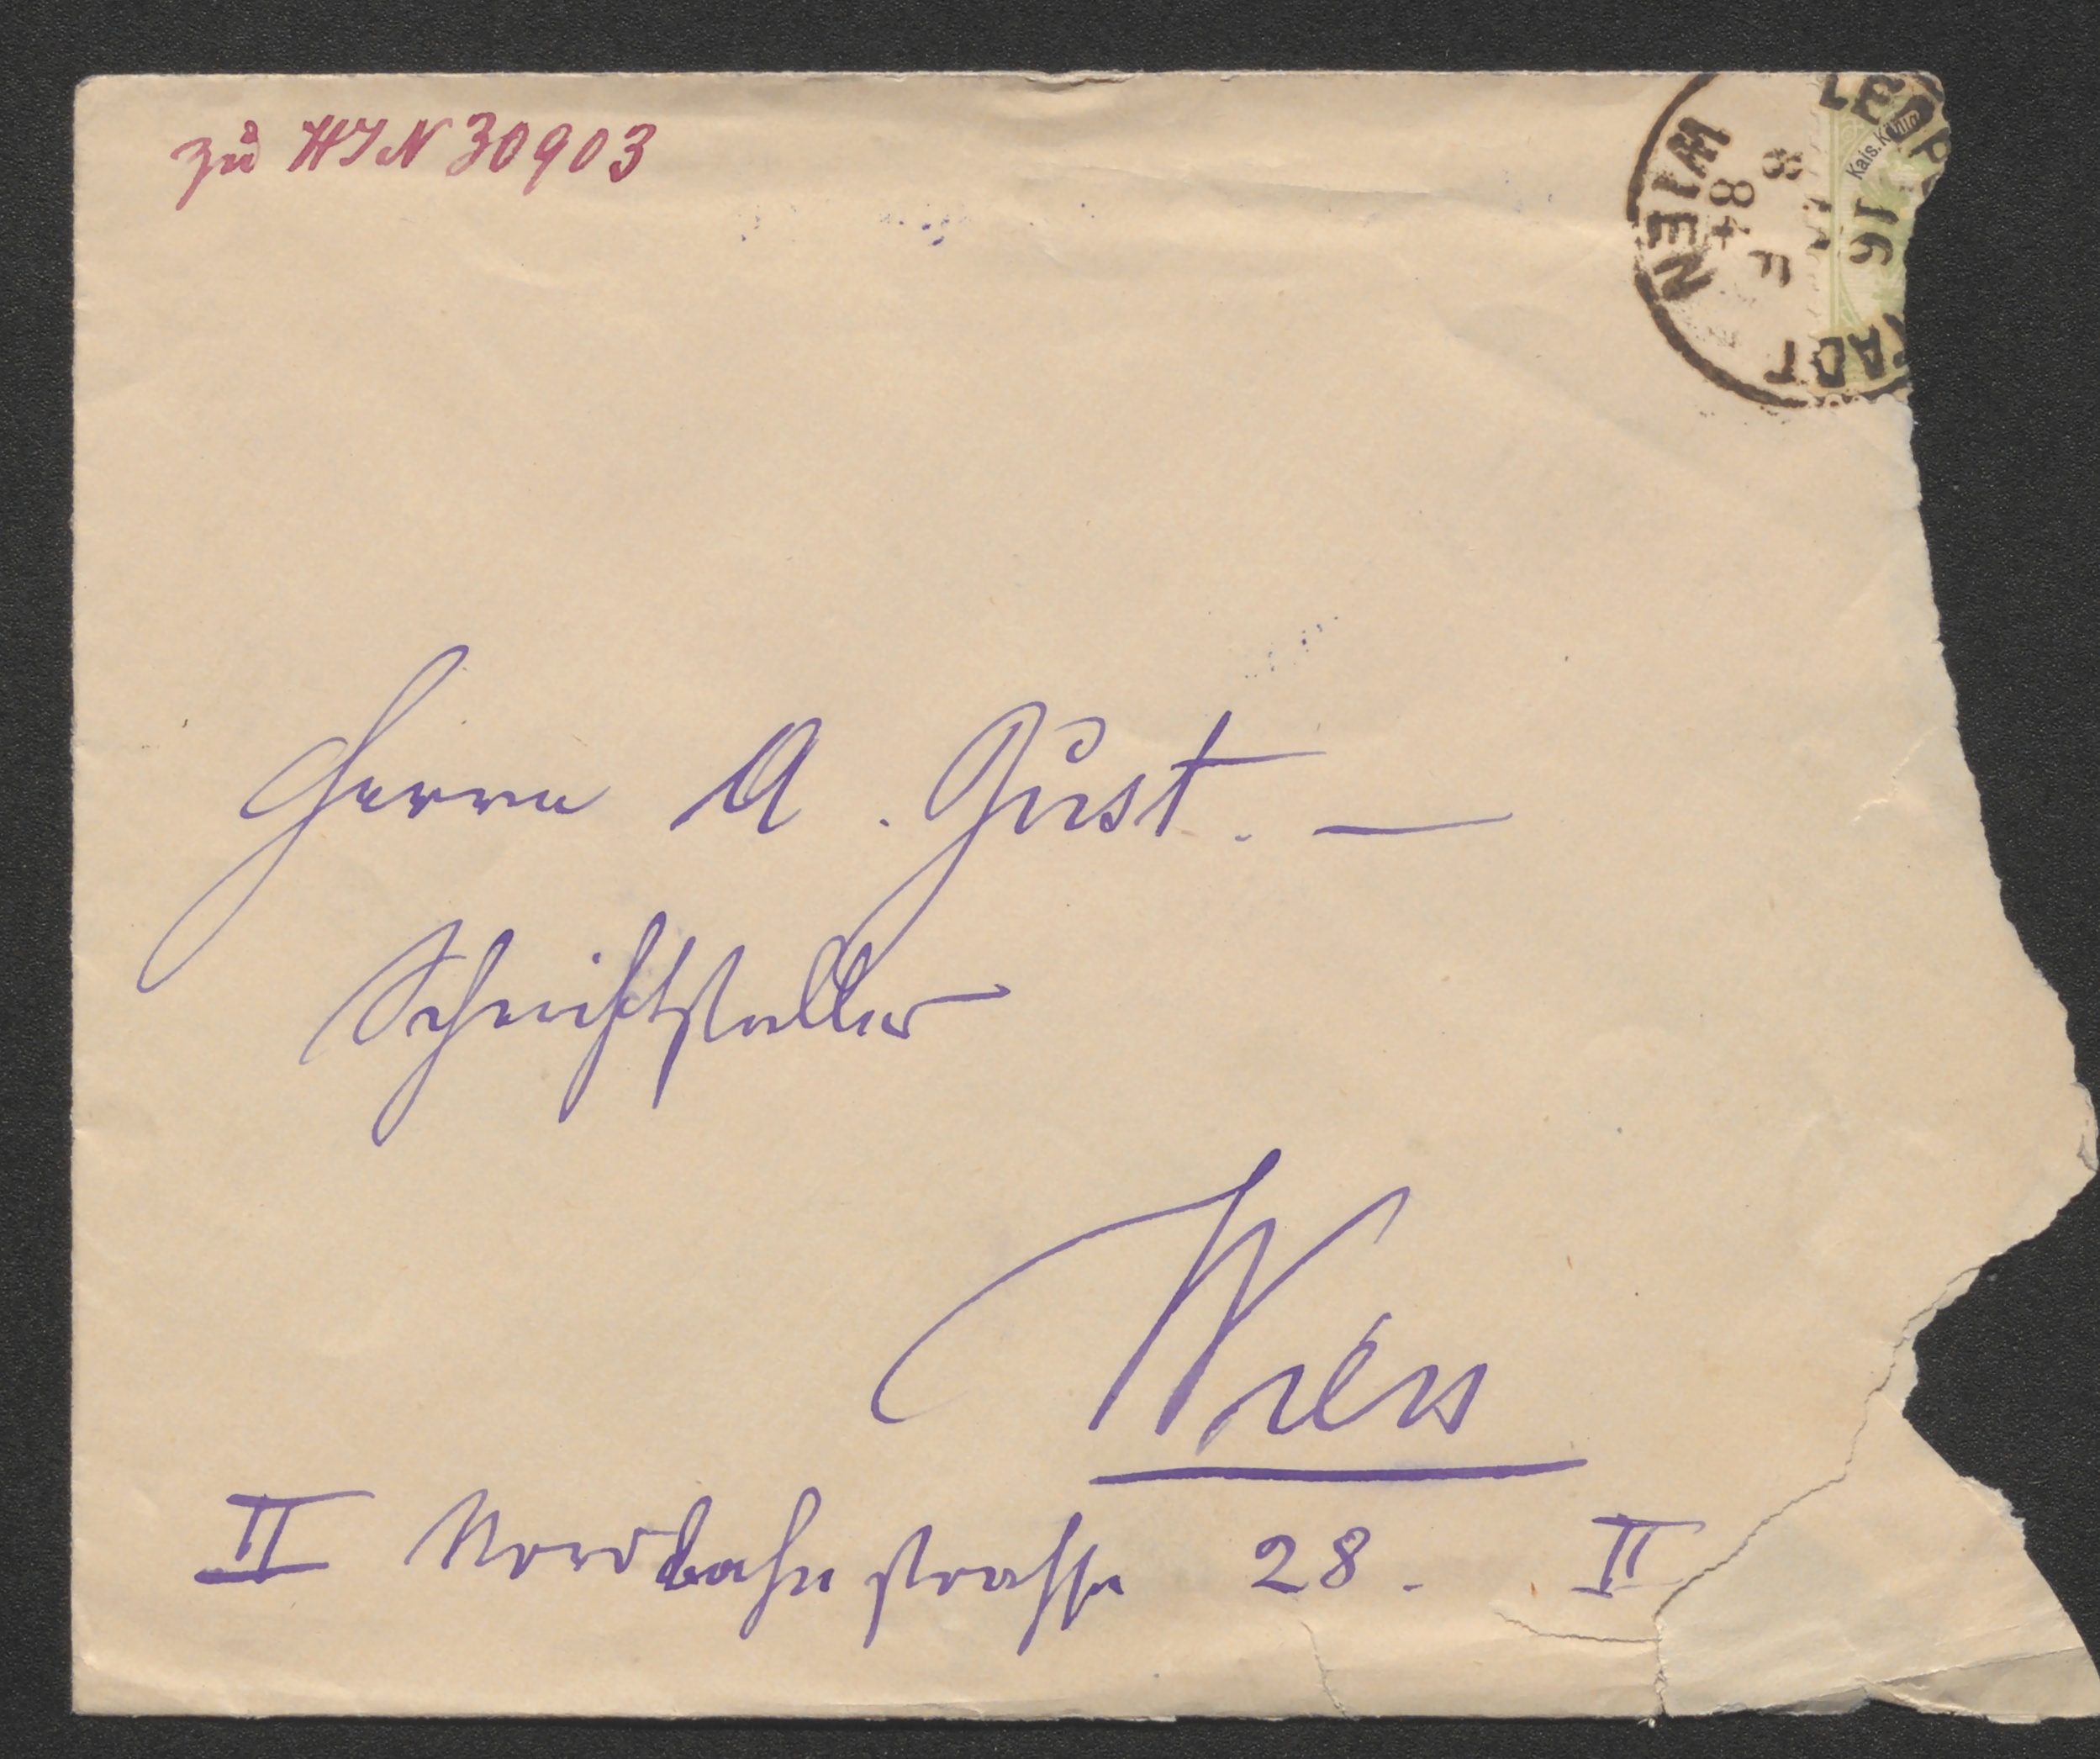 zu HIN 30903
WIEN LEOP TADT
8 84 F
16
Kais. König
Herrn A. Just. —
Schriftsteller
Wien
II Nordbahnstrasse 28. II